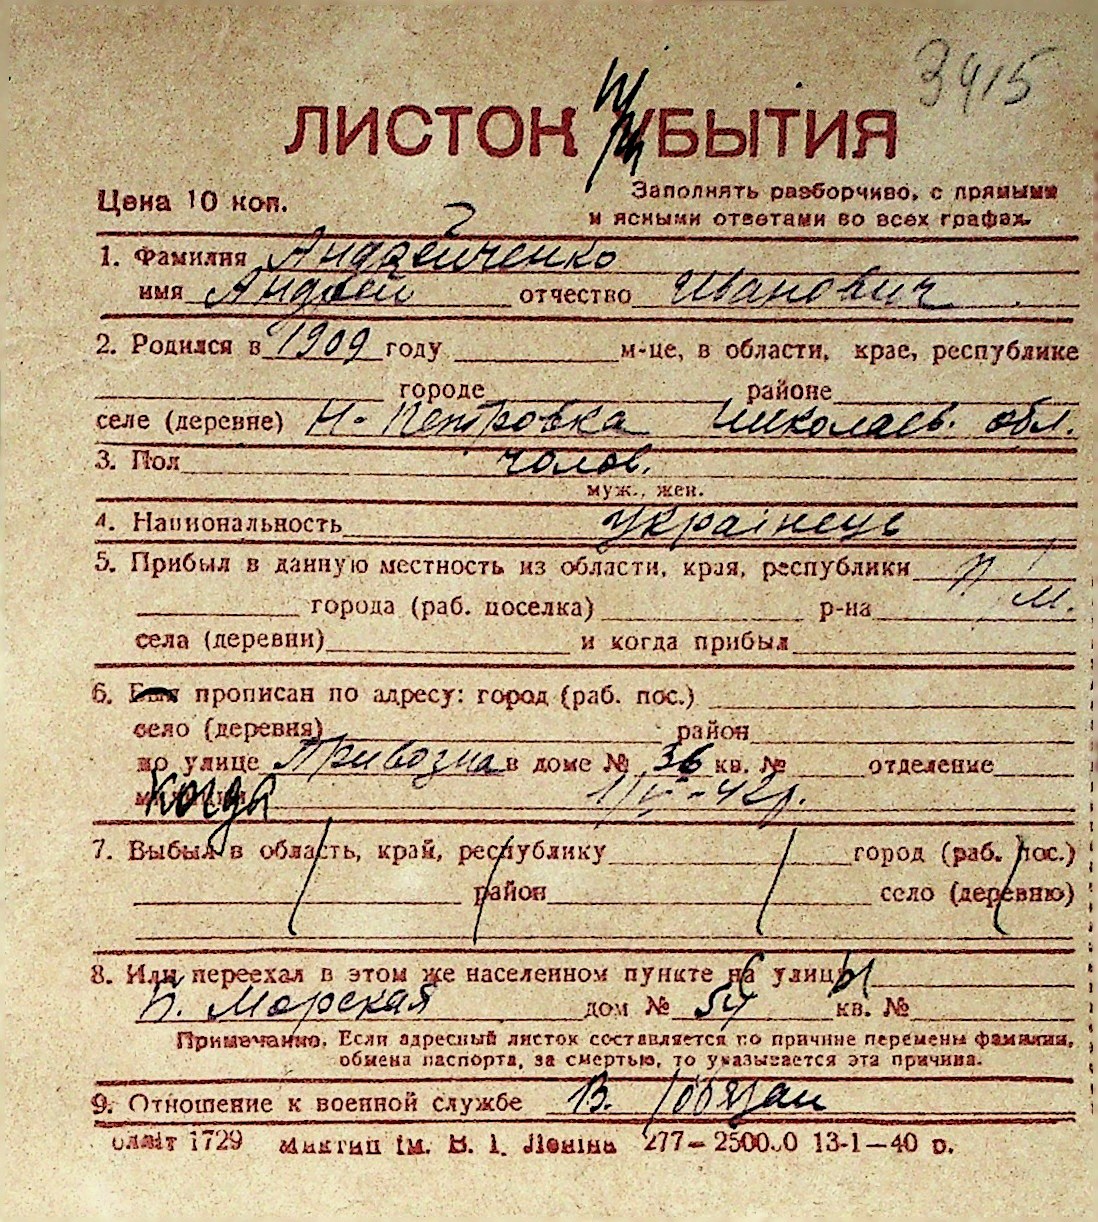 3415
ЛИСТОК УБЫТИЯ
Цена 10 коп.
Заполнять разборчиво, с прямыми
и ясными ответами во всех графах.
1. Фамилия Андрейченко
имя Андрей отчество Иванович
2. Родился в 1909 году м-це, в области, крае, республике
городе районе
селе (деревне) Н-Петровка Николаев. обл.
3. Пол чолов.
муж., жен.
4. Национальность українець
5. Прибыл в данную местность из области, края, республики П
М.
города (раб. поселка) р-на
села (деревни) и когда прибыл
6. Был прописан по адресу: город (раб. пос.)
село (деревня) район
по улице Привозна в доме № 36 кв. № отделение
милиции Когда 42г.
7. Выбыл в область, край, республику город (раб. пос.)
район село (деревню)
8. Или переехал в этом же населенном пункте на улицу
Б. Морская дом № 54 кв. №
Примечание. Если адресный листок составляется по причине перемены фамилии,
обмена паспорта, за смертью, то указывается эта причина.
9. Отношение к военной службе В. /обязан
1729 ім. В. І. Леніна 277— 13-1—40 р.